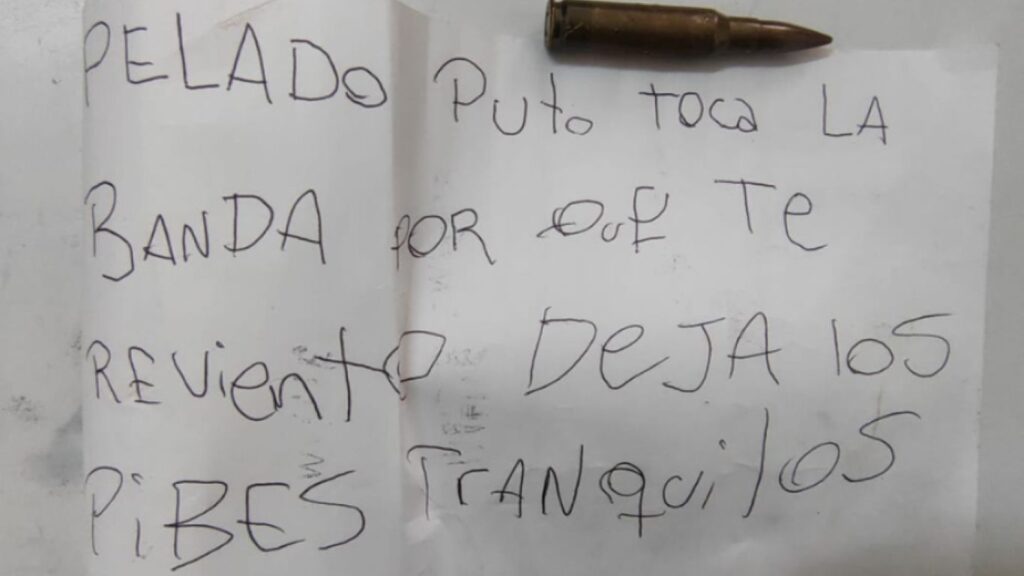 PELADO Puto TOCA LA
BANDA POR QUE Te
REViento DeJA loS
PiBES TrANquiloS